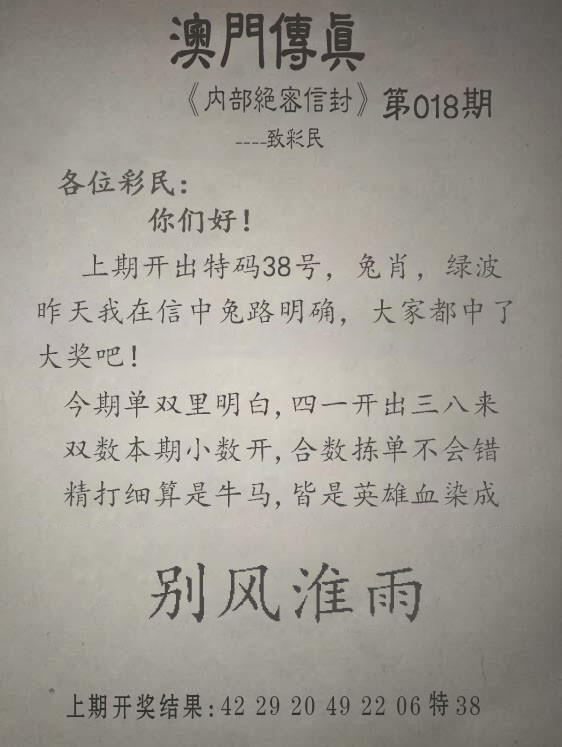 澳門傳真
《内部絕密信封》第018期
----致彩民
各位彩民：
你们好！
上期开出特码38号，兔肖，绿波
昨天我在信中兔路明确，大家都中了
大奖吧！
今期单双里明白,四一开出三八来
双数本期小数开,合数拣单不会错
精打细算是牛马,皆是英雄血染成
别风淮雨
上期开奖结果:42 29 20 49 22 06特38